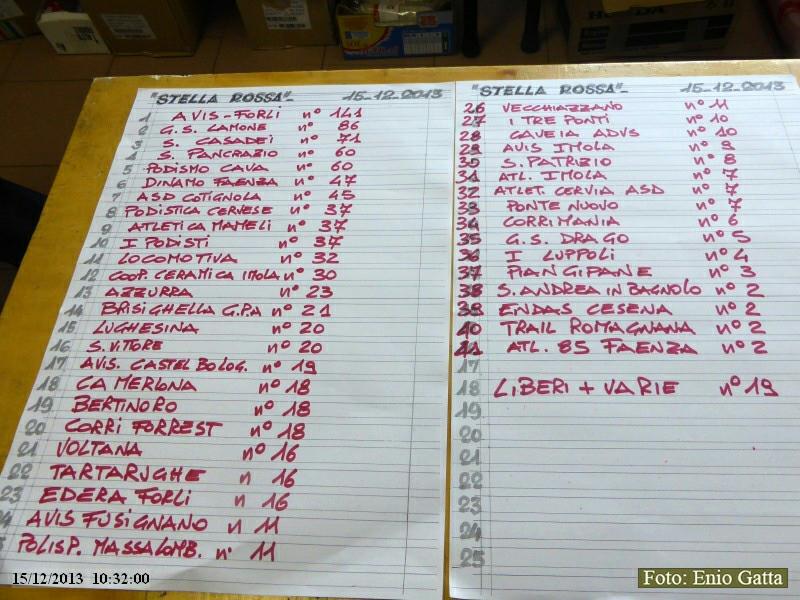 "STELLA ROSSA"- 15-12-2013
1 AVIS-FORLI n° 141
2 G.S. LAMONE n° 86
3 S. CASADEI n° 71
4 S. PANCRAZIO n° 60
5 PODISMO CAVA n° 60
6 DINAMO FAENZA n° 47
7 ASD COTIGNOLA n° 45
8 PODISTICA CERVESE n° 37
9 ATLETICA MAMELI n° 37
10 I PODISTI n° 37
11 LOCOMOTIVA n° 32
12 COOP. CERAMICA IMOLA n° 30
13 AZZURRA n° 23
14 BRISIGHELLA G.PA n° 21
15 LUGHESINA n° 20
16 S. VITORE n° 20
17 AVIS. CASTEL BOLOG. n° 19
18 CA MERLONA n° 18
19 BERTINORO n° 18
20 CORRI FORREST n° 18
21 VOLTANA n° 16
22 TARTARUGHE n 16
23 EDERA FORLI n 16
AVIS FUSIGNANO n 11
POLISP. MASSALOMB. n° 11
"STELLA ROSSA"- 15-12-2013
26 VECCHIAZZANO n° 11
27 I TRE PONTI n° 10
28 CAVEIA ADVS n° 10
29 AVIS IMOLA n° 9
30 S. PATRIZIO n° 8
31 ATL. IMOLA n° 7
32 ATLET. CERVIA ASD n° 7
33 PONTE NUOVO n° 7
34 CORRIMANIA n° 6
35 G.S. DRAGO n° 5
36 I LUPPOLI n° 4
37 PIANGIPANE n° 3
38 S. ANDREA IN BAGNOLO n° 2
39 ENDAS CESENA n° 2
40 TRAIL ROMAGNANA n° 2
41 ATL. 85 FAENZA n° 2
17
18 LIBERI + VARIE n° 19
19
20
21
22
23
24
25
HONDA
15/12/2013 10:32:00
Foto: Enio Gatta